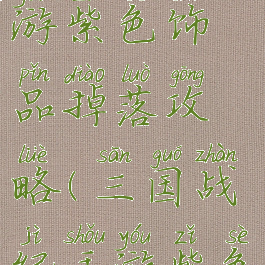 游紫色饰
pǐn diào luò gōng
品掉落攻
lüè sān guó zhàn
略(三国战
jì shǒu yóu zǐ sè